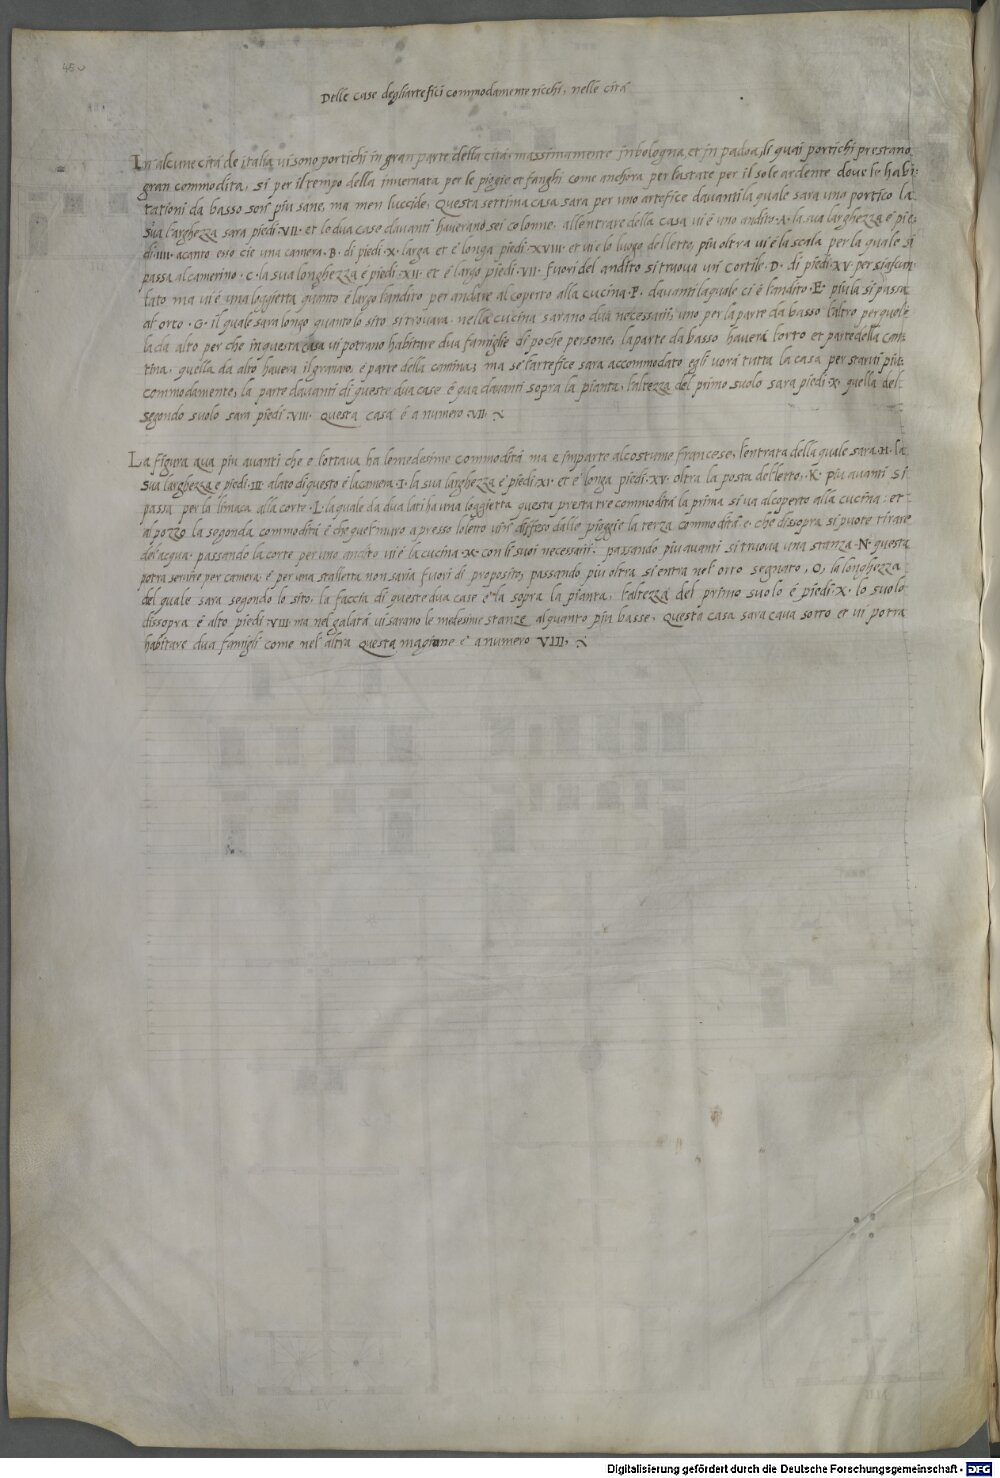 Delle case degliartefici commodamente ricchi, nelle cità
In alcune cità de italia, vi sono portichi in gran parte della cità, massimamente in bologna, et in padoa, li quai portichi prestano
gran commodità, si per il tempo della invernata per le piogie et fanghi come anchora per lastate per il sole ardente dove le habi:
tationi da basso son' piu sane, ma men luccide, Questa settima casa sarà per uno artefice davanti la quale sarà uno portico la
sua larghezza sarà piedi .VII. et le dua case davanti haverano sei colonne, allentrare della casa vi è uno andito .A. la sua larghezza è pie:
di .IIII. acanto esso cie una camera .B. di piedi .X. larga et è longa piedi .XVIII. et vi è lo luogo del letto, piu oltra vi è la scala per la quale si
passa al camerino .C. la sua longhezza è piedi .XII. et è largo piedi .VII. fuori del andito si truova un' cortile .D. di piedi .XV. per ciascun
lato ma vi è una loggietta quanto è largo landito per andare al coperto alla cucina .F. davanti laquale ci è landito .E. più là si passa
al orto .G. il quale sara longo quanto lo sito si trovara, nella cucina sarano dua necessarii, uno per la parte da basso laltro per quel:
la da alto per che in questa casa vi potrano habitare dua famiglie di poche persone, la parte da basso haverà lorto et parte della can:
tina, quella da alto havera il granaro, e parte della cantina; ma se lartefice sara accommodato egli vorà tutta la casa per starvi più
commodamente, la parte davanti di queste dua case è qua davanti sopra la pianta, laltezza del primo suolo sara piedi .X. quella del
segondo suolo sara piedi .VIII. Questa casa è a numero .VII.
La figura qua piu avanti che e lottava ha le medesime commodità ma è in parte al costume francese, lentrata della quale sara .H. la
sua larghezza è piedi .III. alato di questo è la camera .I. la sua larghezza è piedi .XI. et è longa piedi .XV. oltra la posta del letto, .K. piu avanti si
passa per la limaca alla corte .L. la quale da dua lati ha una loggietta questa presta tre commodità la prima si va al coperto alla cucina: et
al pozzo la segonda commodità è che quel muro apresso loletto vien' diffeso dalle pioggie la terza commodità è che dissopra si puote tirare
del acqua. passando la corte per uno andito vi è la cucina .M. con li suoi necessarii. passando piu avanti si truova una stanza .N. questa
potra servire per camera. e per una stalletta non saria fuori di proposito, passando piu oltra si entra nel' orto segnato, O, la longhezza
del quale sara segondo lo sito, la faccia di queste dua case e là sopra la pianta, laltezza del primo suolo è piedi .X. lo suolo
dissopra è alto piedi .VIII. ma nel galatà vi sarano le medesime stanze alquanto più basse, Questa casa sara cava sotto et vi potra
habitare dua famigli' come nel' altra Questa magione è a numero VIII,
Digitalisierung gefördert durch die Deutsche Forschungsgemeinschaft - DFG